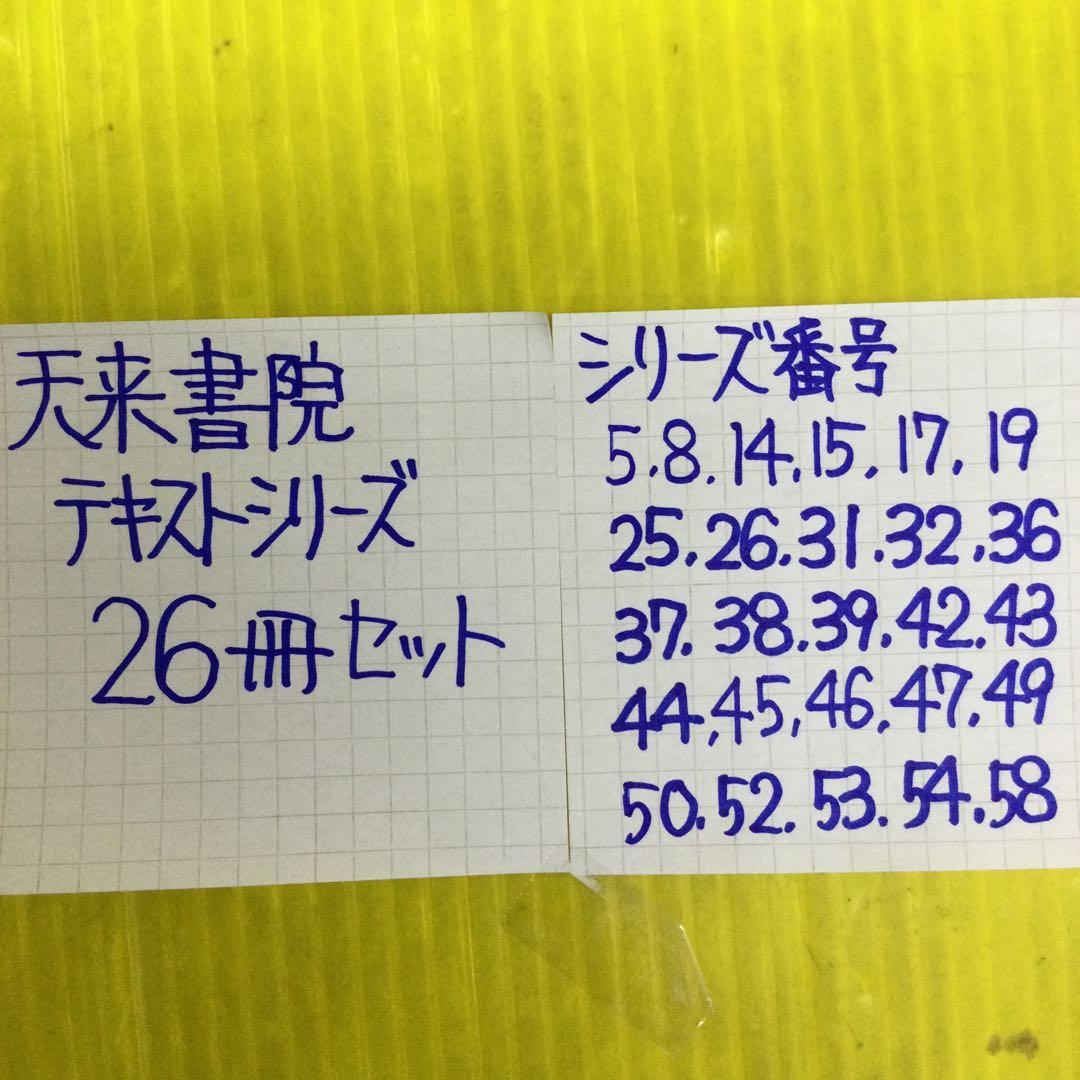 天来書院
テキストシリーズ
26冊セット
シリーズ番号
5.8.14.15.17.19
25.26.31.32.36
37.38.39.42.43
44,45,46,47.49
50.52.53.54.58